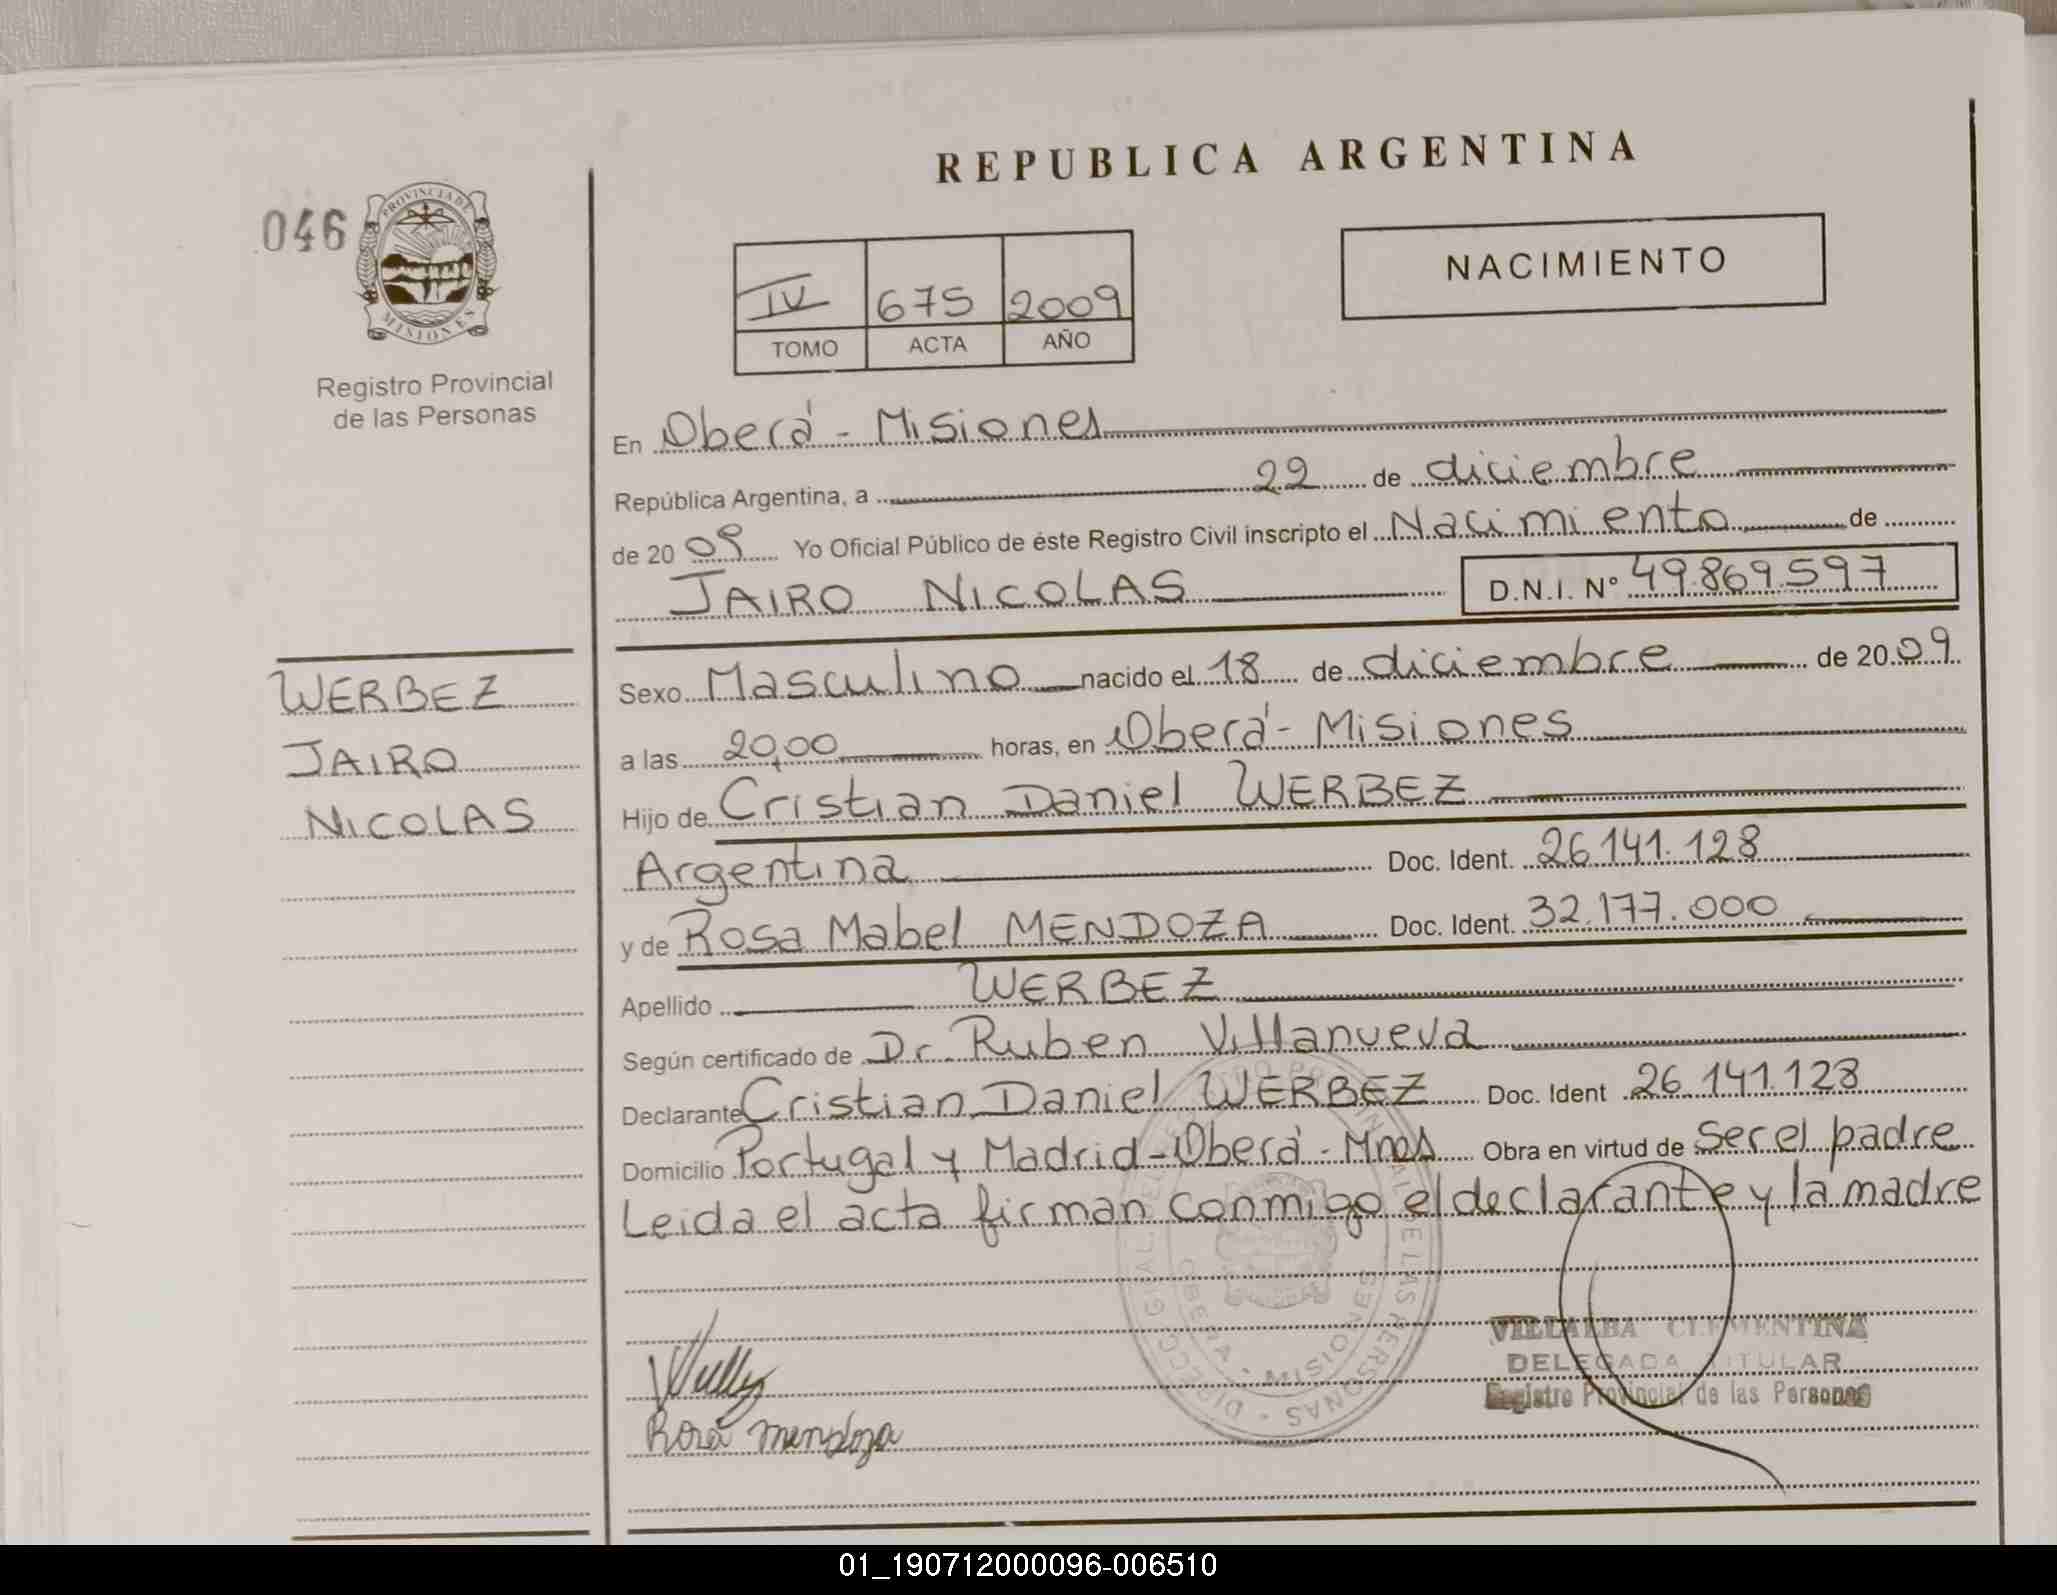 REPUBLICA ARGENTINA
046
PROVINCIA DE
MISIONES
Registro Provincial
de las Personas
IV 675 2009
TOMO ACTA AÑO
NACIMIENTO
En Oberá - Misiones
República Argentina, a 22 de diciembre
de 20 09 Yo Oficial Público de éste Registro Civil inscripto el Nacimiento de
JAIRO NICOLAS D.N.I. Nº 49.869.597
WERBEZ
JAIRO
NICOLAS
Sexo Masculino nacido el 18 de diciembre de 20 09
a las 20,00 horas, en Oberá - Misiones
Hijo de Cristian Daniel WERBEZ
Argentina Doc. Ident. 26.141.128
y de Rosa Mabel MENDOZA Doc. Ident. 32.177.000
Apellido WERBEZ
Según certificado de Dr. Ruben Villanueva
Declarante Cristian Daniel WERBEZ Doc. Ident 26.141.128
Domicilio Portugal y Madrid - Oberá - Mnes Obra en virtud de ser el padre
Leida el acta firman conmigo el declarante y la madre
OBERA - MISIONES
VILLALBA CLEMENTINA
DELEGADA TITULAR
Registro Provincial de las Personas
Rosa mendoza
01_190712000096-006510